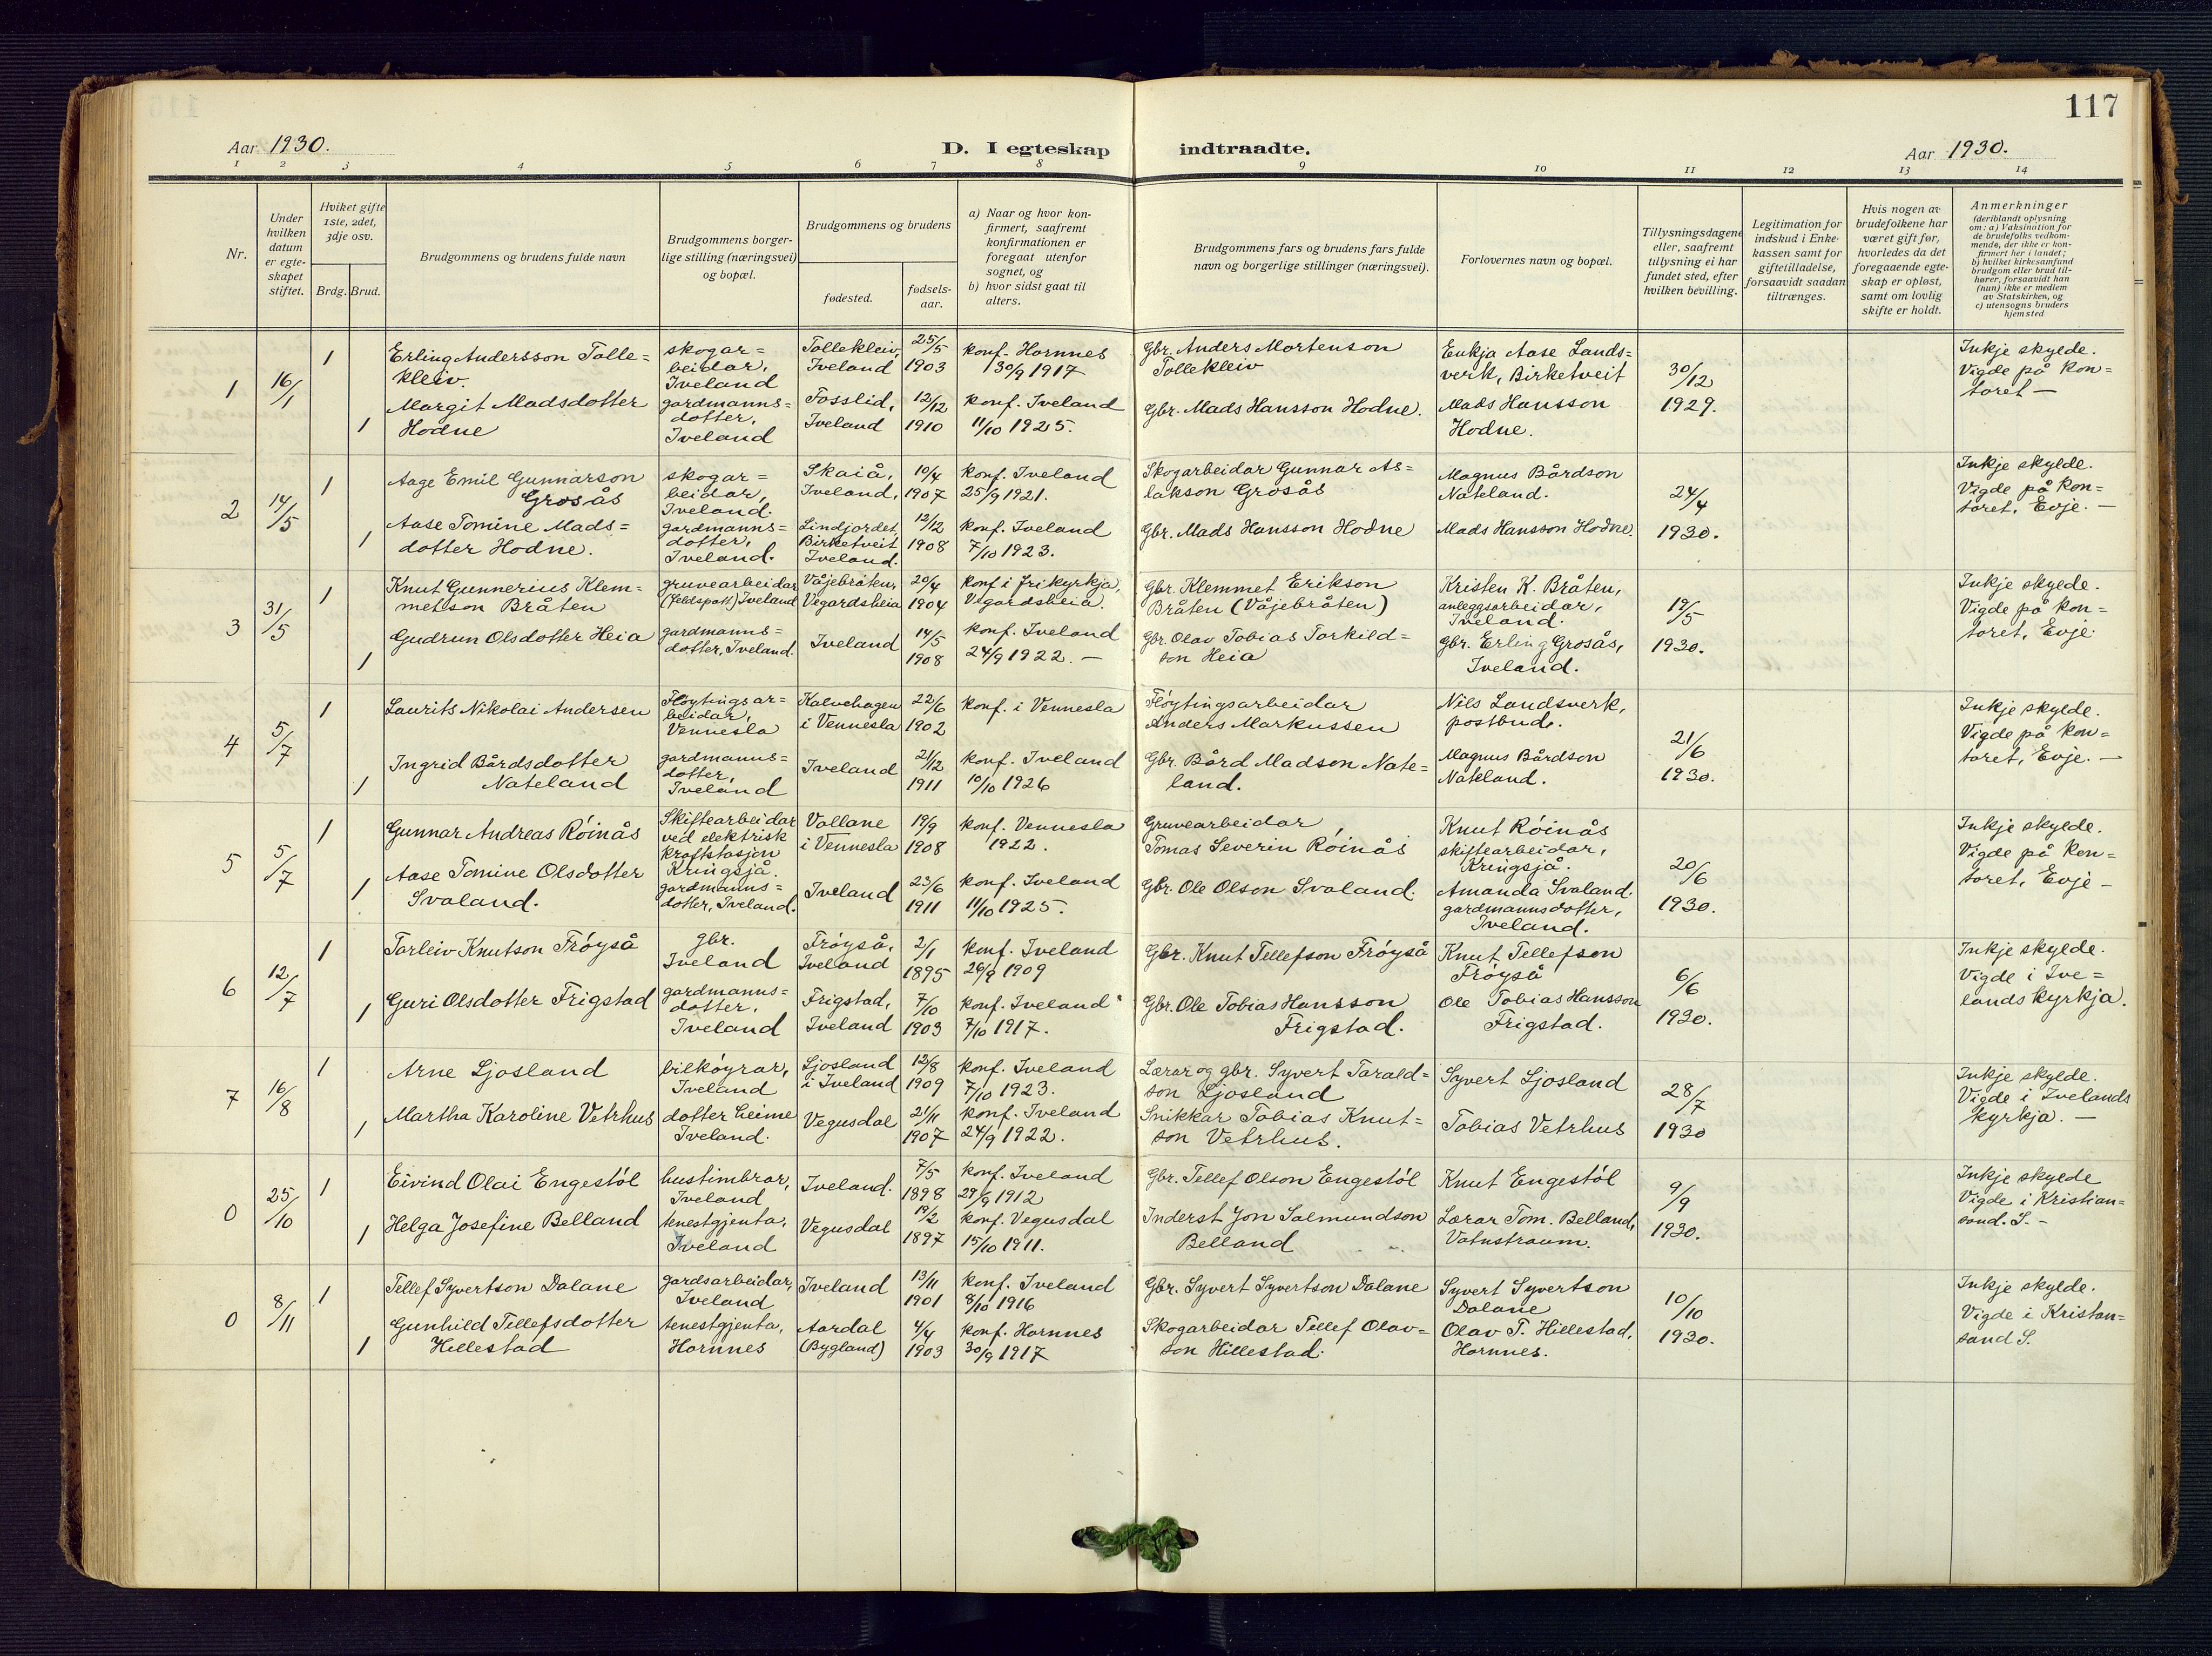 117
Aar 1930.
D. I egteskap indtraadte.
Aar 1930.
1 2 3 4 5 6 7 8 9 10 11 12 13 14
Nr.
Under hvilken datum er egteskapet stiftet.
Hviket gifte 1ste, 2det, 3dje osv.
Brdg. Brud.
Brudgommens og brudens fulde navn
Brudgommens borgerlige stilling (næringsvei) og bopæl.
Brudgommens og brudens
fødested.
fødselsaar.
a) Naar og hvor konfirmert, saafremt konfirmationen er foregaat utenfor sognet, og
b) hvor sidst gaat til alters.
Brudgommens fars og brudens fars fulde navn og borgerlige stillinger (næringsvei).
Forlovernes navn og bopæl.
Tillysningsdagene eller, saafremt tillysning ei har fundet sted, efter hvilken bevilling.
Legitimation for indskud i Enkekassen samt for giftetilladelse, forsaavidt saadan tiltrænges.
Hvis nogen av brudefolkene har været gift før, hvorledes da det foregaaende egteskap er opløst, samt om lovlig skifte er holdt.
Anmerkninger
(deriblandt oplysning om: a) Vaksination for de brudefolks vedkommende, der ikke er konfirmert her i landet; b) hvilket kirkesamfund brudgom eller brud tilhører, forsaavidt han (hun) ikke er medlem av Statskirken, og c) utensogns bruders hjemsted
1
16/1
1
Erling Andersson Tolle=
kleiv.
skogar=
beidar,
Iveland
Tollekleiv,
Iveland
25/5
1903
konf. Hornnes
30/9 1917
Gbr. Anders Mortenson
Tollekleiv
Enkja Aase Lands=
verk, Birketveit
30/12
1929.
Inkje skylde.
Vigde på kon=
toret —
1
Margit Madsdotter
Hodne
gardmanns=
dotter,
Iveland
Fosslid,
Iveland
12/12
1910
konf. Iveland
11/10 1925.
Gbr. Mads Hansson Hodne.
Mads Hansson
Hodne.
2
14/5
1
Aage Emil Gunnarson
Grosås
skogar=
beidar,
Iveland.
Skaiå,
Iveland,
10/4
1907
konf. Iveland
25/9 1921.
Skogarbeidar Gunnar As=
lakson Grosås
Magnus Bårdson
Nateland.
24/4
1930.
Inkje skylde.
Vigde på kon=
toret, Evje. —
1
Aase Tomine Mads=
dotter Hodne.
gardmanns=
dotter,
Iveland.
Lindjordet,
Birketveit
Iveland.
12/12
1908
konf. Iveland
7/10 1923.
Gbr. Mads Hansson Hodne
Mads Hansson Hodne.
3
31/5
1
Knut Gunnerius Klem=
metson Bråten
gruvearbeidar
(feldspatt) Iveland
Våjebråten,
Vegardsheia
20/4
1904
konf i frikyrkja,
Vegardsheia.
Gbr. Klemmet Erikson
Bråten (Våjebråten)
Kristen K. Bråten,
anleggsarbeidar,
Iveland.
19/5
1930.
Inkje skylde.
Vigde på kon=
toret, Evje.
1
Gudrun Olsdotter Heia
gardmanns=
dotter, Iveland.
Iveland
14/5
1908
konf. Iveland
24/9 1922. —
Gbr. Olav Tobias Torkild=
son Heia
Gbr. Erling Grosås,
Iveland.
4
5/7
1
Laurits Nikolai Andersen
Fløytingsar=
beidar,
Vennesla
Kalvehagen
i Vennesla
22/6
1902
konf. i Vennesla
Fløytingsarbeidar
Anders Markussen
Nils Landsverk,
postbud.
21/6
1930.
Inkje skylde.
Vigde på kon=
toret, Evje. —
1
Ingrid Bårdsdotter
Nateland
gardmanns=
dotter,
Iveland
Iveland
21/12
1911
konf. Iveland
10/10 1926
Gbr. Bård Madson Nate=
land.
Magnus Bårdson
Nateland.
5
5/7
1
Gunnar Andreas Røinås
Skiftearbeidar
ved elektrisk
kraftstasjon
Kringsjå.
Vollane
i Vennesla
19/9
1908
konf. Vennesla
1922.
Gruvearbeidar
Tomas Severin Røinås
Knut Røinås
skiftearbeidar,
Kringsjå.
20/6
1930.
Inkje skylde.
Vigde på kon=
toret, Evje —
1
Aase Tomine Olsdotter
Svaland.
gardmanns=
dotter, Iveland.
Iveland
23/6
1911
konf. Iveland
11/10 1925.
Gbr. Ole Olson Svaland.
Amanda Svaland.
gardmannsdotter,
Iveland.
6
12/7
1
Torleiv Knutson Frøyså
gbr.
Iveland
Frøyså,
Iveland
2/1
1895
konf. Iveland
26/9 1909
Gbr. Knut Tellefson Frøyså
Knut Tellefson
Frøyså
6/6
1930.
Inkje skylde.
Vigde i Ive=
lands kyrkja.
1
Guri Olsdotter Frigstad
gardmanns=
dotter,
Iveland
Frigstad,
Iveland
7/10
1903
konf. Iveland
7/10 1917.
Gbr. Ole Tobias Hansson
Frigstad.
Ole Tobias Hansson
Frigstad.
7
16/8
1
Arne Ljosland
bilkøyrar,
Iveland
Ljosland
i Iveland
12/8
1909
konf. Iveland
7/10 1923.
Lærar og gbr. Syvert Tarald=
son Ljosland
Syvert Ljosland
28/7
1930
Inkje skylde.
Vigde i Ivelands
kyrkja. —
1
Martha Karoline Vetrhus
dotter heime
Iveland.
Vegusdal
21/11
1907
konf. Iveland
24/9 1922.
Snikkar Tobias Knut=
son Vetrhus.
Tobias Vetrhus
0
25/10
1
Eivind Olai Engestøl
hustimbrar,
Iveland
Iveland.
7/5
1898
konf. Iveland
29/9 1912
Gbr. Tellef Olson Engestøl
Knut Engestøl
9/9
1930.
Inkje skylde
Vigde i Kristian=
sand. S. —
1
Helga Josefine Belland
tenestgjenta,
Iveland
Vegusdal
19/2
1897
konf. Vegusdal
15/10 1911.
Inderst Jon Salmundson
Belland
Lærar Tom. Belland,
Vatnstraum.
0
8/11
1
Tellef Syvertson Dalane
gardsarbeidar,
Iveland
Iveland
13/11
1901
konf. Iveland
8/10 1916
Gbr. Syvert Syvertson Dalane
Syvert Syvertson
Dalane
10/10
1930.
Inkje skylde.
Vigde i Kristan=
sand S.
1
Gunhild Tellefsdotter
Hillestad
tenestgjenta,
Hornnes
Aardal
(Bygland)
4/4
1903
konf. Hornnes
30/9 1917
Skogarbeidar Tellef Olav=
son Hillestad.
Olav T. Hillestad,
Hornnes.